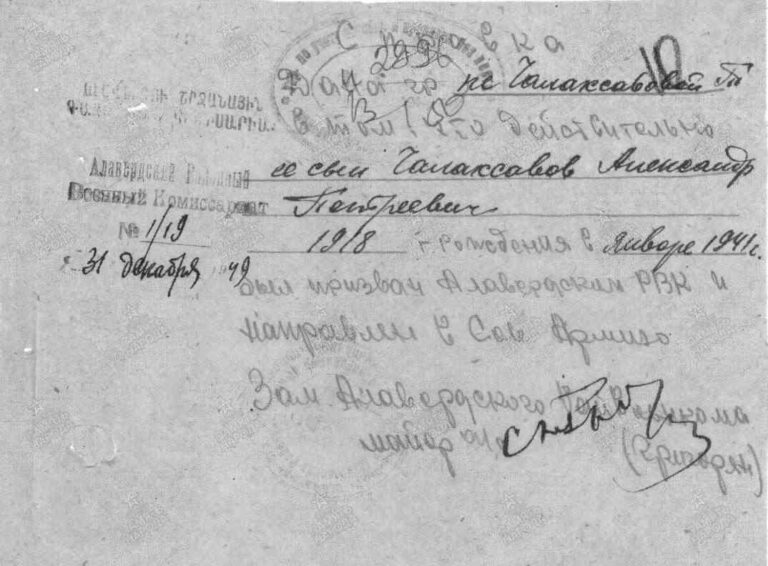 Справка
2996
Дана гр. нс Чалаксазовой Т
10
В том, что действительно
ее сын Чалаксазов Александр
Петреевич
1918 г. рождения в январе 1941 г.
был призван Алавердским РВК и
направлен в Сов Армию
Зам. Алавердского Райвоенкома
майор
Алавердский Районный
Военный Комиссариат
№ 1/19
31 декабря 1949